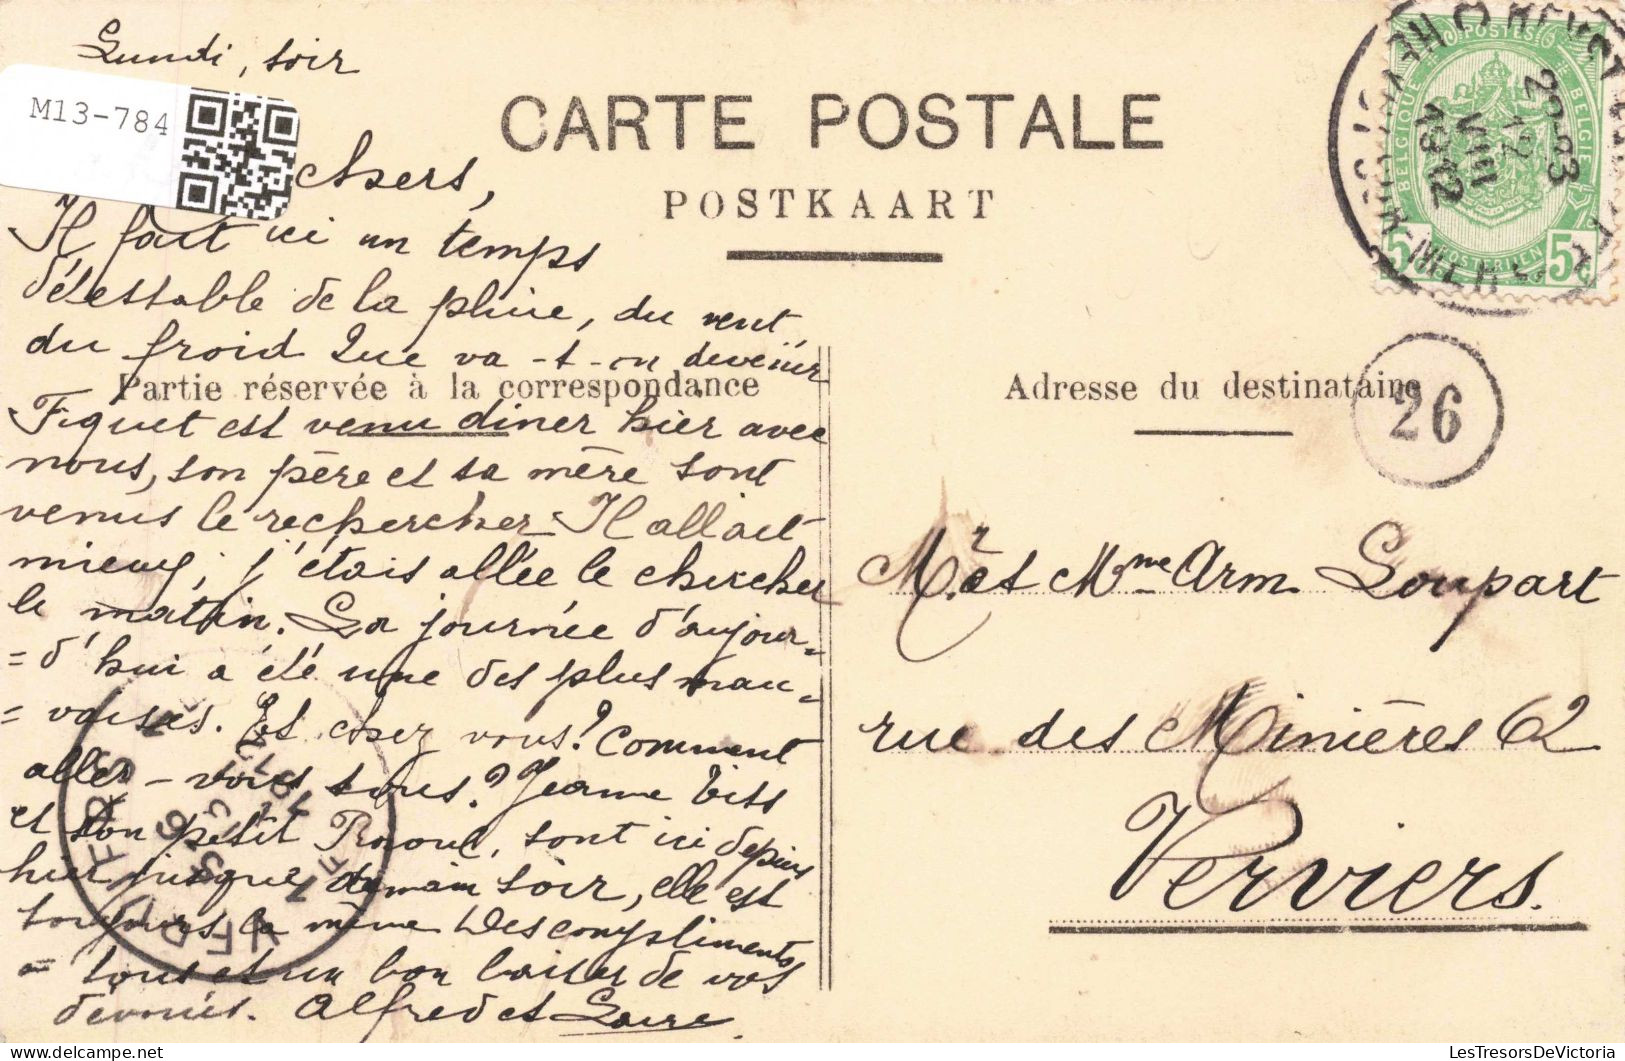 Lundi, soir
M13-784
CARTE POSTALE
POSTKAART
chers,
Il fait ici un temps
détestable de la pluie, du vent
du froid Que va-t-on devenir
Partie réservée à la correspondance
Figuet est venu diner hier avec
nous, son père et sa mère sont
venus le rechercher Il allait
mieux, j'étais allée le chercher
le matin. La journée d'aujour=
=d'hui a été une des plus mau=
=vaises. Et chez vous? Comment
allez-vous tous? Jeanne Tiss
et son petit Raoul, sont ici depuis
hier jusque demain soir, elle est
toujours la même Des compliments
à tous et un bon baiser de vos
dévoués. Alfred et Laure.
POSTES
BELGIQUE
BELGIE
POSTERIJEN
5c 5c
VIII
Adresse du destinataire
26
Mr et Mme Arm. Loupart
rue des Minières 62
Verviers.
LesTresorsDeVictoria
https://www.delcampe.net